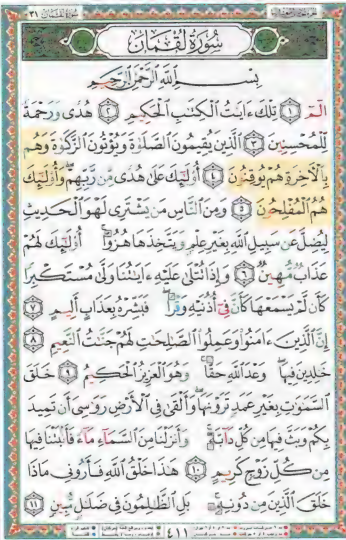 سُورَةُ لُقْمَان ٣١
سُورَةُ لُقْمَانَ
بِسْمِ ٱللَّهِ ٱلرَّحْمَٰنِ ٱلرَّحِيمِ
الٓمٓ ١ تِلْكَ ءَايَٰتُ ٱلْكِتَٰبِ ٱلْحَكِيمِ ٢ هُدًى وَرَحْمَةً
لِّلْمُحْسِنِينَ ٣ ٱلَّذِينَ يُقِيمُونَ ٱلصَّلَوٰةَ وَيُؤْتُونَ ٱلزَّكَوٰةَ وَهُم
بِٱلْءَاخِرَةِ هُمْ يُوقِنُونَ ٤ أُوْلَٰٓئِكَ عَلَىٰ هُدًى مِّن رَّبِّهِمْ وَأُوْلَٰٓئِكَ
هُمُ ٱلْمُفْلِحُونَ ٥ وَمِنَ ٱلنَّاسِ مَن يَشْتَرِى لَهْوَ ٱلْحَدِيثِ
لِيُضِلَّ عَن سَبِيلِ ٱللَّهِ بِغَيْرِ عِلْمٍ وَيَتَّخِذَهَا هُزُوًا أُوْلَٰٓئِكَ لَهُمْ
عَذَابٌ مُّهِينٌ ٦ وَإِذَا تُتْلَىٰ عَلَيْهِ ءَايَٰتُنَا وَلَّىٰ مُسْتَكْبِرًا
كَأَن لَّمْ يَسْمَعْهَا كَأَنَّ فِىٓ أُذُنَيْهِ وَقْرًا فَبَشِّرْهُ بِعَذَابٍ أَلِيمٍ ٧
إِنَّ ٱلَّذِينَ ءَامَنُوا۟ وَعَمِلُوا۟ ٱلصَّٰلِحَٰتِ لَهُمْ جَنَّٰتُ ٱلنَّعِيمِ ٨
خَٰلِدِينَ فِيهَا وَعْدَ ٱللَّهِ حَقًّا وَهُوَ ٱلْعَزِيزُ ٱلْحَكِيمُ ٩ خَلَقَ
ٱلسَّمَٰوَٰتِ بِغَيْرِ عَمَدٍ تَرَوْنَهَا وَأَلْقَىٰ فِى ٱلْأَرْضِ رَوَٰسِىَ أَن تَمِيدَ
بِكُمْ وَبَثَّ فِيهَا مِن كُلِّ دَآبَّةٍ وَأَنزَلْنَا مِنَ ٱلسَّمَآءِ مَآءً فَأَنۢبَتْنَا فِيهَا
مِن كُلِّ زَوْجٍ كَرِيمٍ ١٠ هَٰذَا خَلْقُ ٱللَّهِ فَأَرُونِى مَاذَا
خَلَقَ ٱلَّذِينَ مِن دُونِهِۦ بَلِ ٱلظَّٰلِمُونَ فِى ضَلَٰلٍ مُّبِينٍ ١١
٤١١